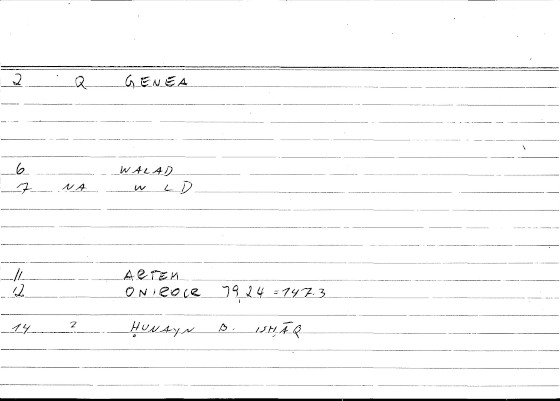 2 Q GENEA
6 WALAD
7 NA W L D
11 ARTEM
12 ONIROCR 79,24 = 147.3
14 2 ḤUNAYN B. ISḤĀQ